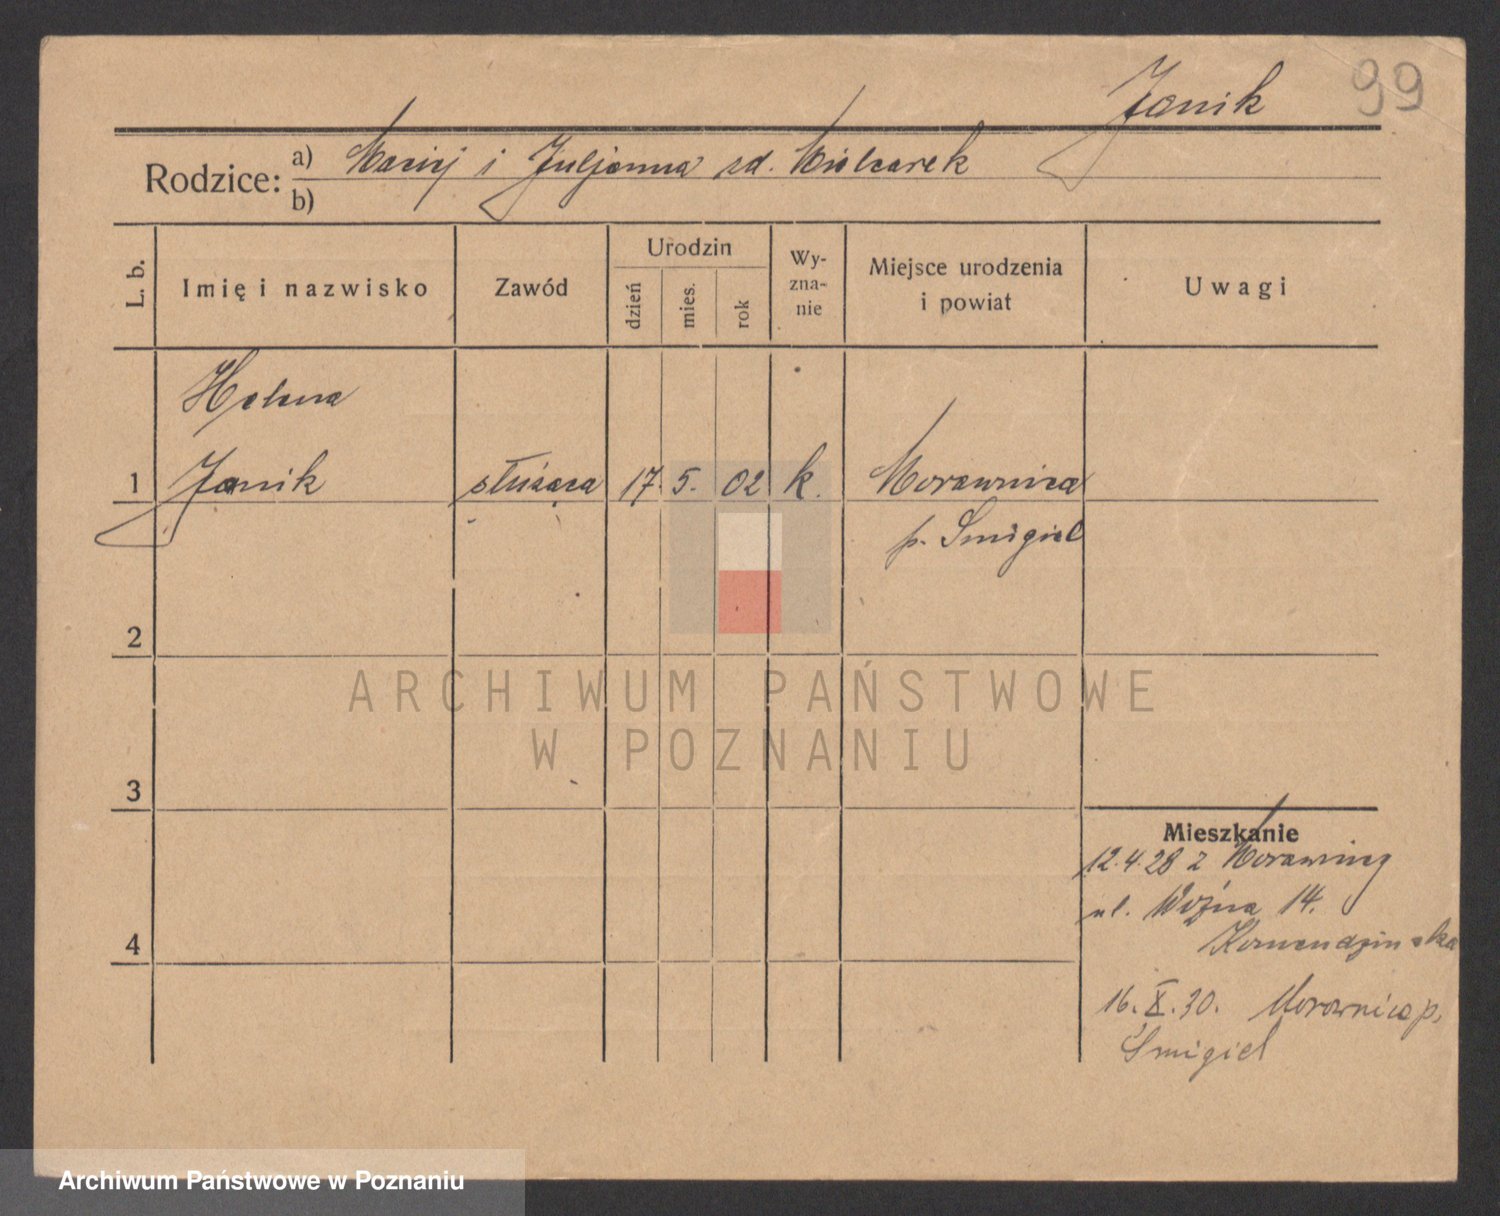 Janik 99
Rodzice: a) Maciej i Juljanna zd. Mielcarek
b)
L. b. Imię i nazwisko Zawód Urodzin dzień mies. rok Wy-zna-nie Miejsce urodzenia i powiat Uwagi
Helena
1 Janik służąca 17. 5. 02 k. Morawnica
p. Śmigiel
2
ARCHIWUM PAŃSTWOWE
W POZNANIU
3
Mieszkanie
12.4.28 z Morawnicy
ul. Woźna 14.
4
Komendzińska
16.X.30. Morownica p.
Śmigiel
Archiwum Państwowe w Poznaniu